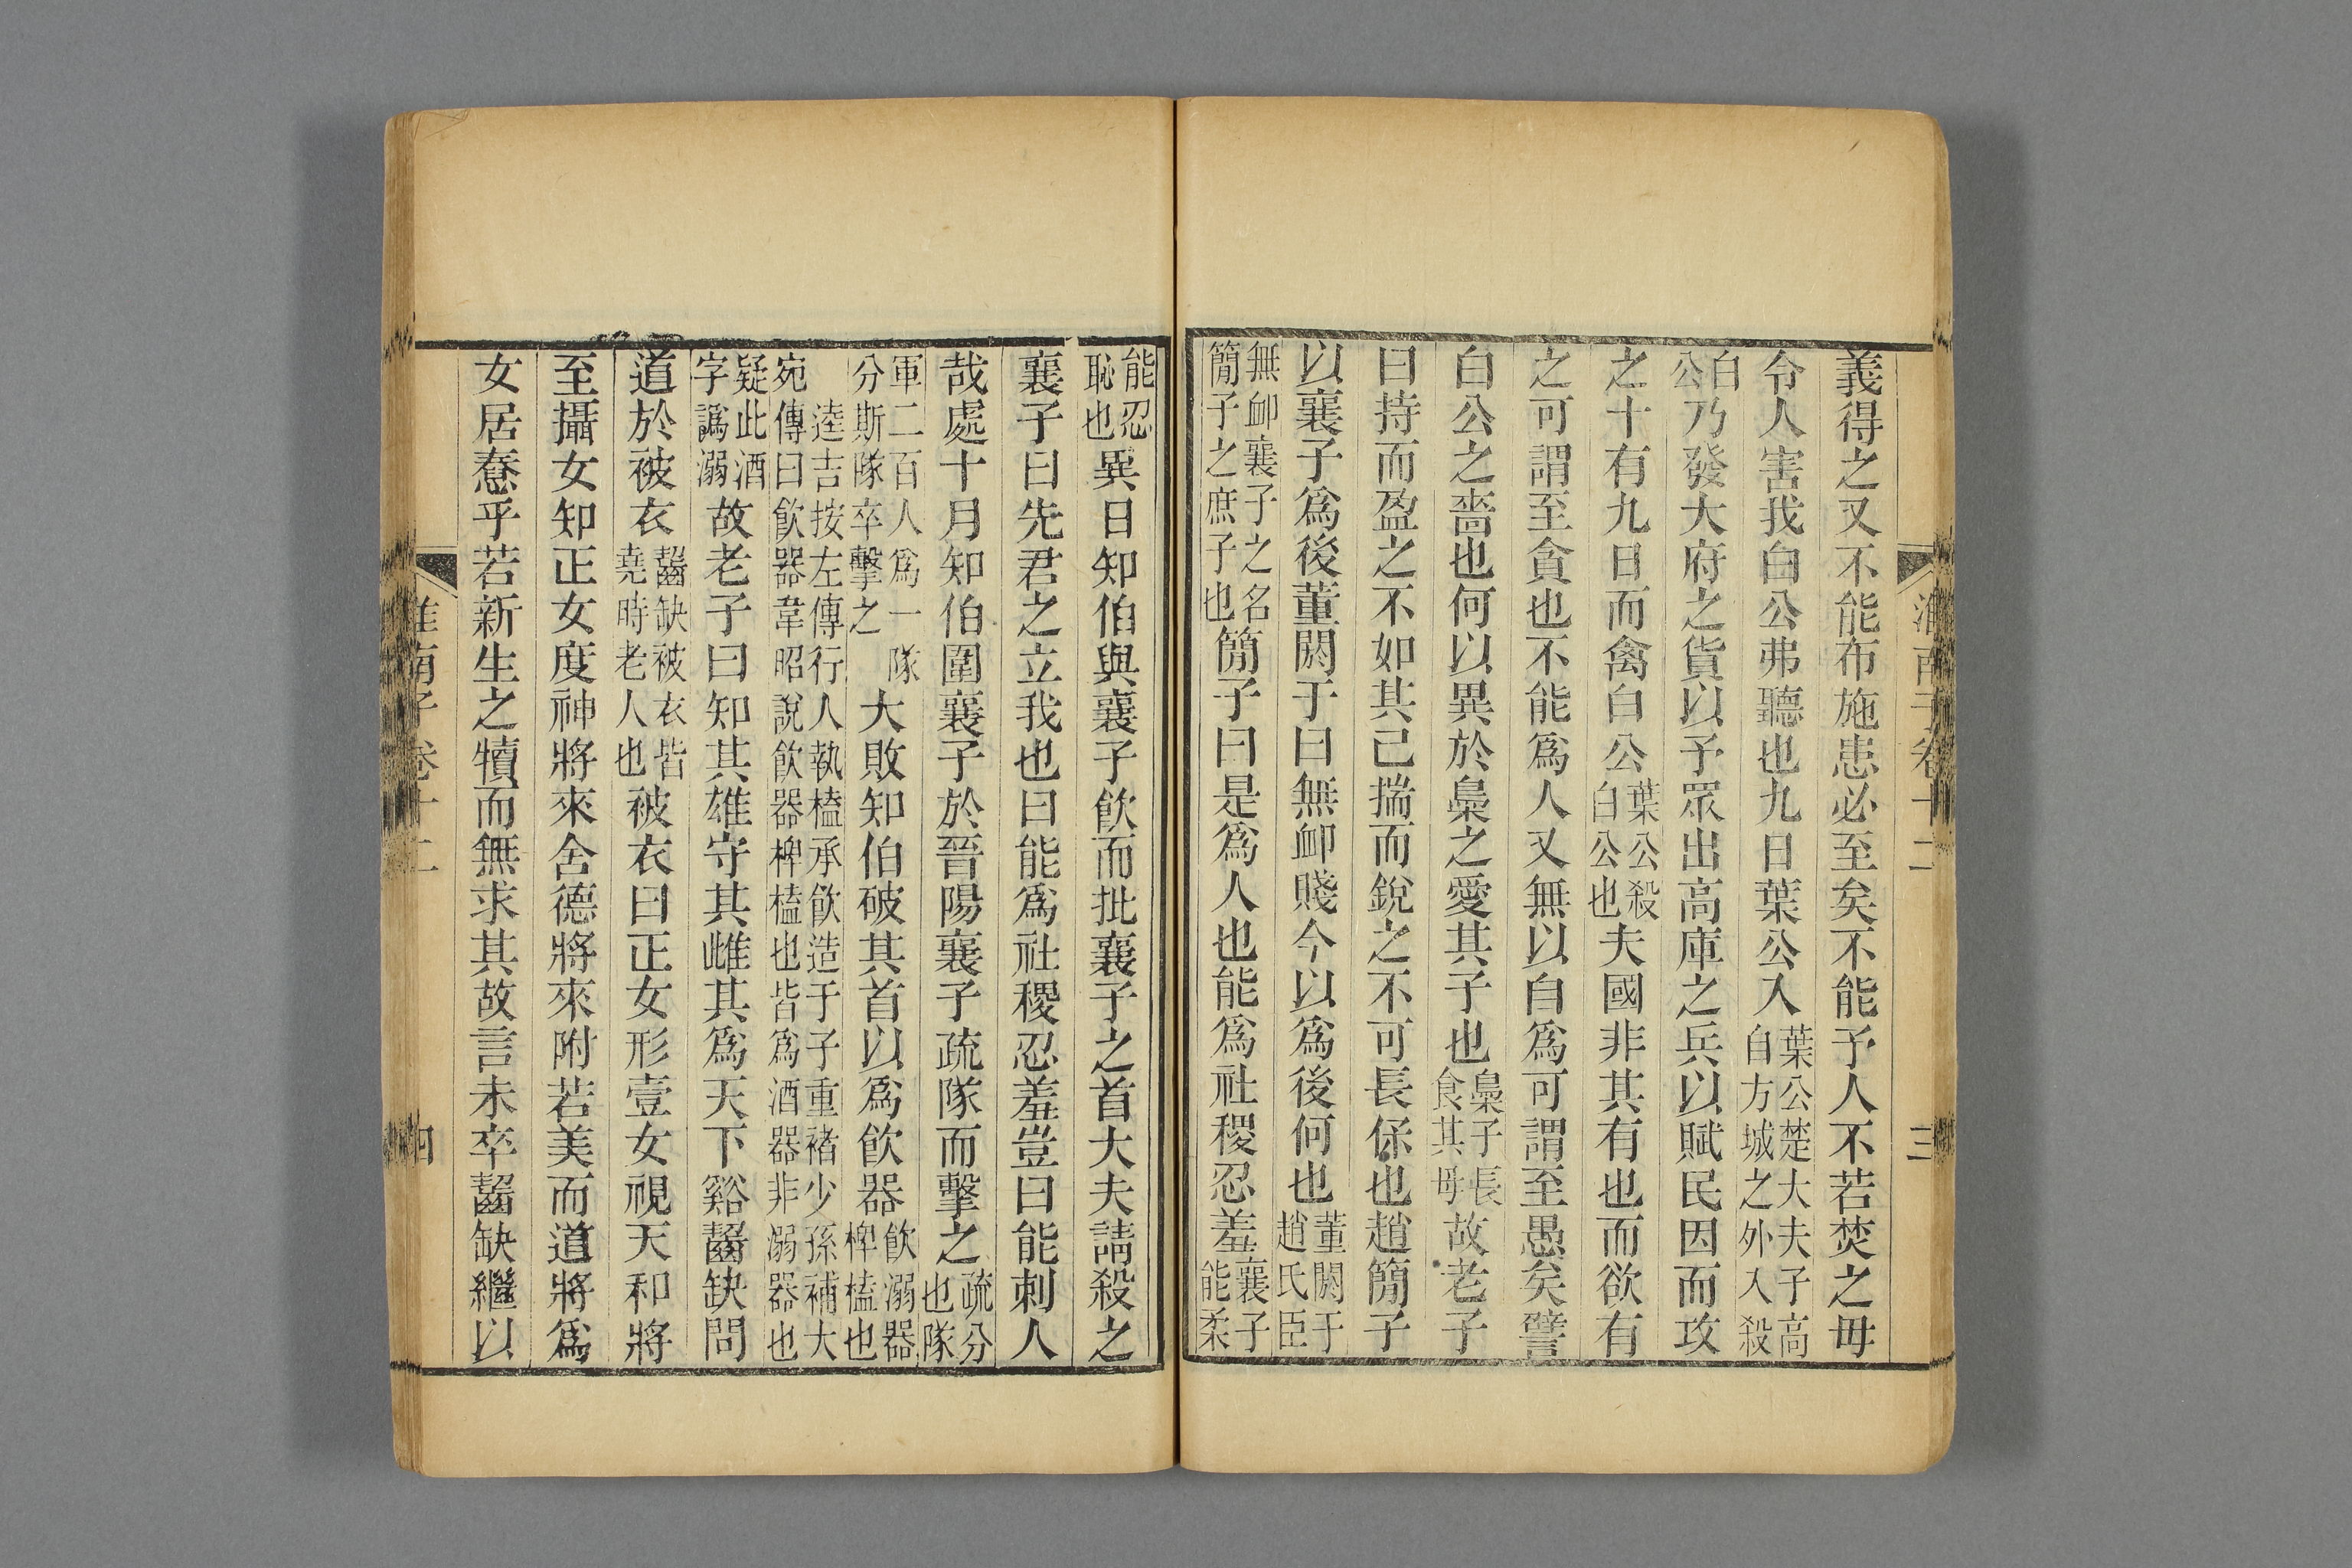 淮南子卷十二 三
義得之又不能布施患必至矣不能予人不若焚之毋
令人害我白公弗聽也九日葉公入葉公楚大夫子高自方城之外入殺
白公乃發大府之貨以予眾出高庫之兵以賦民因而攻
之十有九日而禽白公葉公殺白公也夫國非其有也而欲有
之可謂至貪也不能爲人又無以自爲可謂至愚矣譬
白公之嗇也何以異於梟之愛其子也梟子長食其母故老子
曰持而盈之不如其已揣而銳之不可長保也趙簡子
以襄子爲後董閼于曰無卹賤今以爲後何也董閼于趙氏臣
無卹襄子之名簡子之庶子也簡子曰是爲人也能爲社稷忍羞襄子能柔
能忍恥也異日知伯與襄子飲而批襄子之首大夫請殺之
襄子曰先君之立我也曰能爲社稷忍羞豈曰能刺人
哉處十月知伯圍襄子於晉陽襄子疏隊而擊之疏分也隊
軍二百人爲一隊分斯隊卒擊之大敗知伯破其首以爲飲器飲溺器椑榼也
逵吉按左傳行人執榼承飲造于子重褚少孫補大宛傳曰飲器韋昭說飲器椑榼也皆爲酒器非溺器也
疑此酒字譌溺故老子曰知其雄守其雌其爲天下谿齧缺問
道於被衣齧缺被衣皆堯時老人也被衣曰正女形壹女視天和將
至攝女知正女度神將來舍德將來附若美而道將爲
女居惷乎若新生之犢而無求其故言未卒齧缺繼以
淮南子卷十二 四